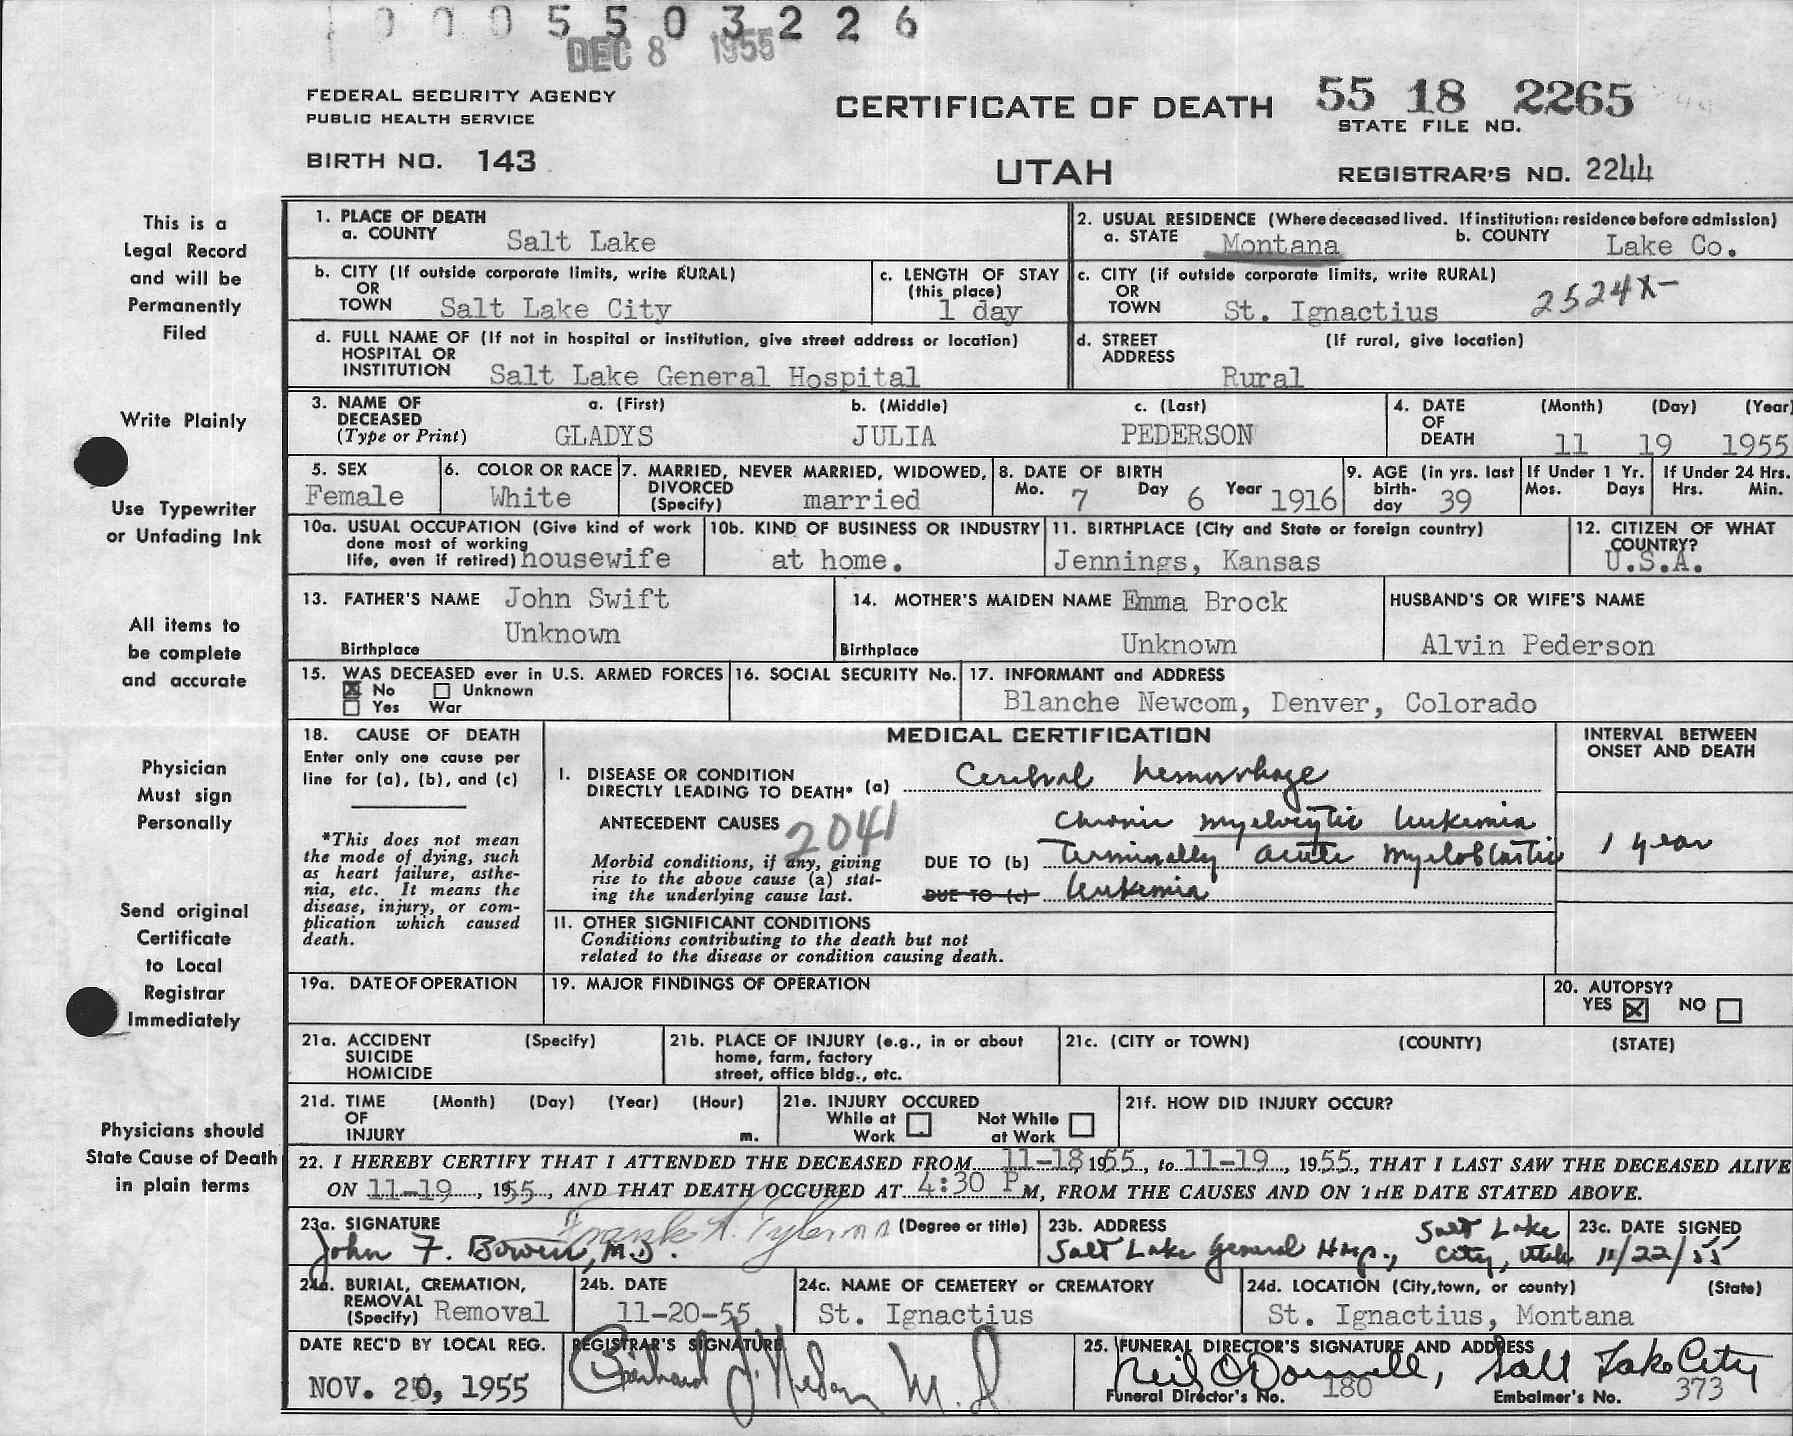 0 0 0 5 5 0 3 2 2 6
DEC 8 1955
FEDERAL SECURITY AGENCY
PUBLIC HEALTH SERVICE
BIRTH NO. 143
CERTIFICATE OF DEATH
UTAH
55 18 2265
STATE FILE NO.
REGISTRAR'S NO. 2244
This is a
Legal Record
and will be
Permanently
Filed
Write Plainly
Use Typewriter
or Unfading Ink
All items to
be complete
and accurate
Physician
Must sign
Personally
Send original
Certificate
to Local
Registrar
Immediately
Physicians should
State Cause of Death
in plain terms
1. PLACE OF DEATH
a. COUNTY Salt Lake
2. USUAL RESIDENCE (Where deceased lived. If institution: residence before admission)
a. STATE Montana b. COUNTY Lake Co.
b. CITY (If outside corporate limits, write RURAL)
OR
TOWN Salt Lake City
c. LENGTH OF STAY
(this place)
1 day
c. CITY (if outside corporate limits, write RURAL)
OR
TOWN St. Ignactius
2524X-
d. FULL NAME OF (If not in hospital or institution, give street address or location)
HOSPITAL OR
INSTITUTION Salt Lake General Hospital
d. STREET (If rural, give location)
ADDRESS
Rural
3. NAME OF a. (First) b. (Middle) c. (Last)
DECEASED
(Type or Print) GLADYS JULIA PEDERSON
4. DATE (Month) (Day) (Year)
OF
DEATH 11 19 1955
5. SEX
Female
6. COLOR OR RACE
White
7. MARRIED, NEVER MARRIED, WIDOWED,
DIVORCED
(Specify) married
8. DATE OF BIRTH
Mo. 7 Day 6 Year 1916
9. AGE (in yrs. last
birth-
day 39
If Under 1 Yr.
Mos. Days
If Under 24 Hrs.
Hrs. Min.
10a. USUAL OCCUPATION (Give kind of work
done most of working
life, even if retired) housewife
10b. KIND OF BUSINESS OR INDUSTRY
at home.
11. BIRTHPLACE (City and State or foreign country)
Jennings, Kansas
12. CITIZEN OF WHAT
COUNTRY?
U.S.A.
13. FATHER'S NAME John Swift
Unknown
Birthplace
14. MOTHER'S MAIDEN NAME Emma Brock
Birthplace Unknown
HUSBAND'S OR WIFE'S NAME
Alvin Pederson
15. WAS DECEASED ever in U.S. ARMED FORCES
No Unknown
Yes War
16. SOCIAL SECURITY No.
17. INFORMANT and ADDRESS
Blanche Newcom, Denver, Colorado
18. CAUSE OF DEATH
Enter only one cause per
line for (a), (b), and (c)
*This does not mean
the mode of dying, such
as heart failure, asthe-
nia, etc. It means the
disease, injury, or com-
plication which caused
death.
MEDICAL CERTIFICATION
INTERVAL BETWEEN
ONSET AND DEATH
I. DISEASE OR CONDITION
DIRECTLY LEADING TO DEATH* (a) Cerebral hemorrhage
ANTECEDENT CAUSES 2041 Chronic myelocytic leukemia
Morbid conditions, if any, giving
rise to the above cause (a) stat-
ing the underlying cause last.
DUE TO (b) Terminally acute myeloblastic 1 year
DUE TO (c) leukemia
II. OTHER SIGNIFICANT CONDITIONS
Conditions contributing to the death but not
related to the disease or condition causing death.
19a. DATE OF OPERATION
19. MAJOR FINDINGS OF OPERATION
20. AUTOPSY?
YES NO
21a. ACCIDENT (Specify)
SUICIDE
HOMICIDE
21b. PLACE OF INJURY (e.g., in or about
home, farm, factory
street, office bldg., etc.
21c. (CITY or TOWN) (COUNTY) (STATE)
21d. TIME (Month) (Day) (Year) (Hour)
OF
INJURY m.
21e. INJURY OCCURED
While at Work Not While at Work
21f. HOW DID INJURY OCCUR?
22. I HEREBY CERTIFY THAT I ATTENDED THE DECEASED FROM 11-18 1955, to 11-19, 1955, THAT I LAST SAW THE DECEASED ALIVE
ON 11-19, 1955, AND THAT DEATH OCCURED AT 4:30 P M, FROM THE CAUSES AND ON THE DATE STATED ABOVE.
23a. SIGNATURE Frank A. Tyler MD (Degree or title)
John F. Bowen, M.D.
23b. ADDRESS
Salt Lake General Hosp., Salt Lake City, Utah
23c. DATE SIGNED
11/22/55
24a. BURIAL, CREMATION,
REMOVAL
(Specify) Removal
24b. DATE
11-20-55
24c. NAME OF CEMETERY or CREMATORY
St. Ignactius
24d. LOCATION (City, town, or county) (State)
St. Ignactius, Montana
DATE REC'D BY LOCAL REG.
NOV. 20, 1955
REGISTRAR'S SIGNATURE
M.D.
25. FUNERAL DIRECTOR'S SIGNATURE AND ADDRESS
Neil O'Donnell, Salt Lake City
Funeral Director's No. 180 Embalmer's No. 373